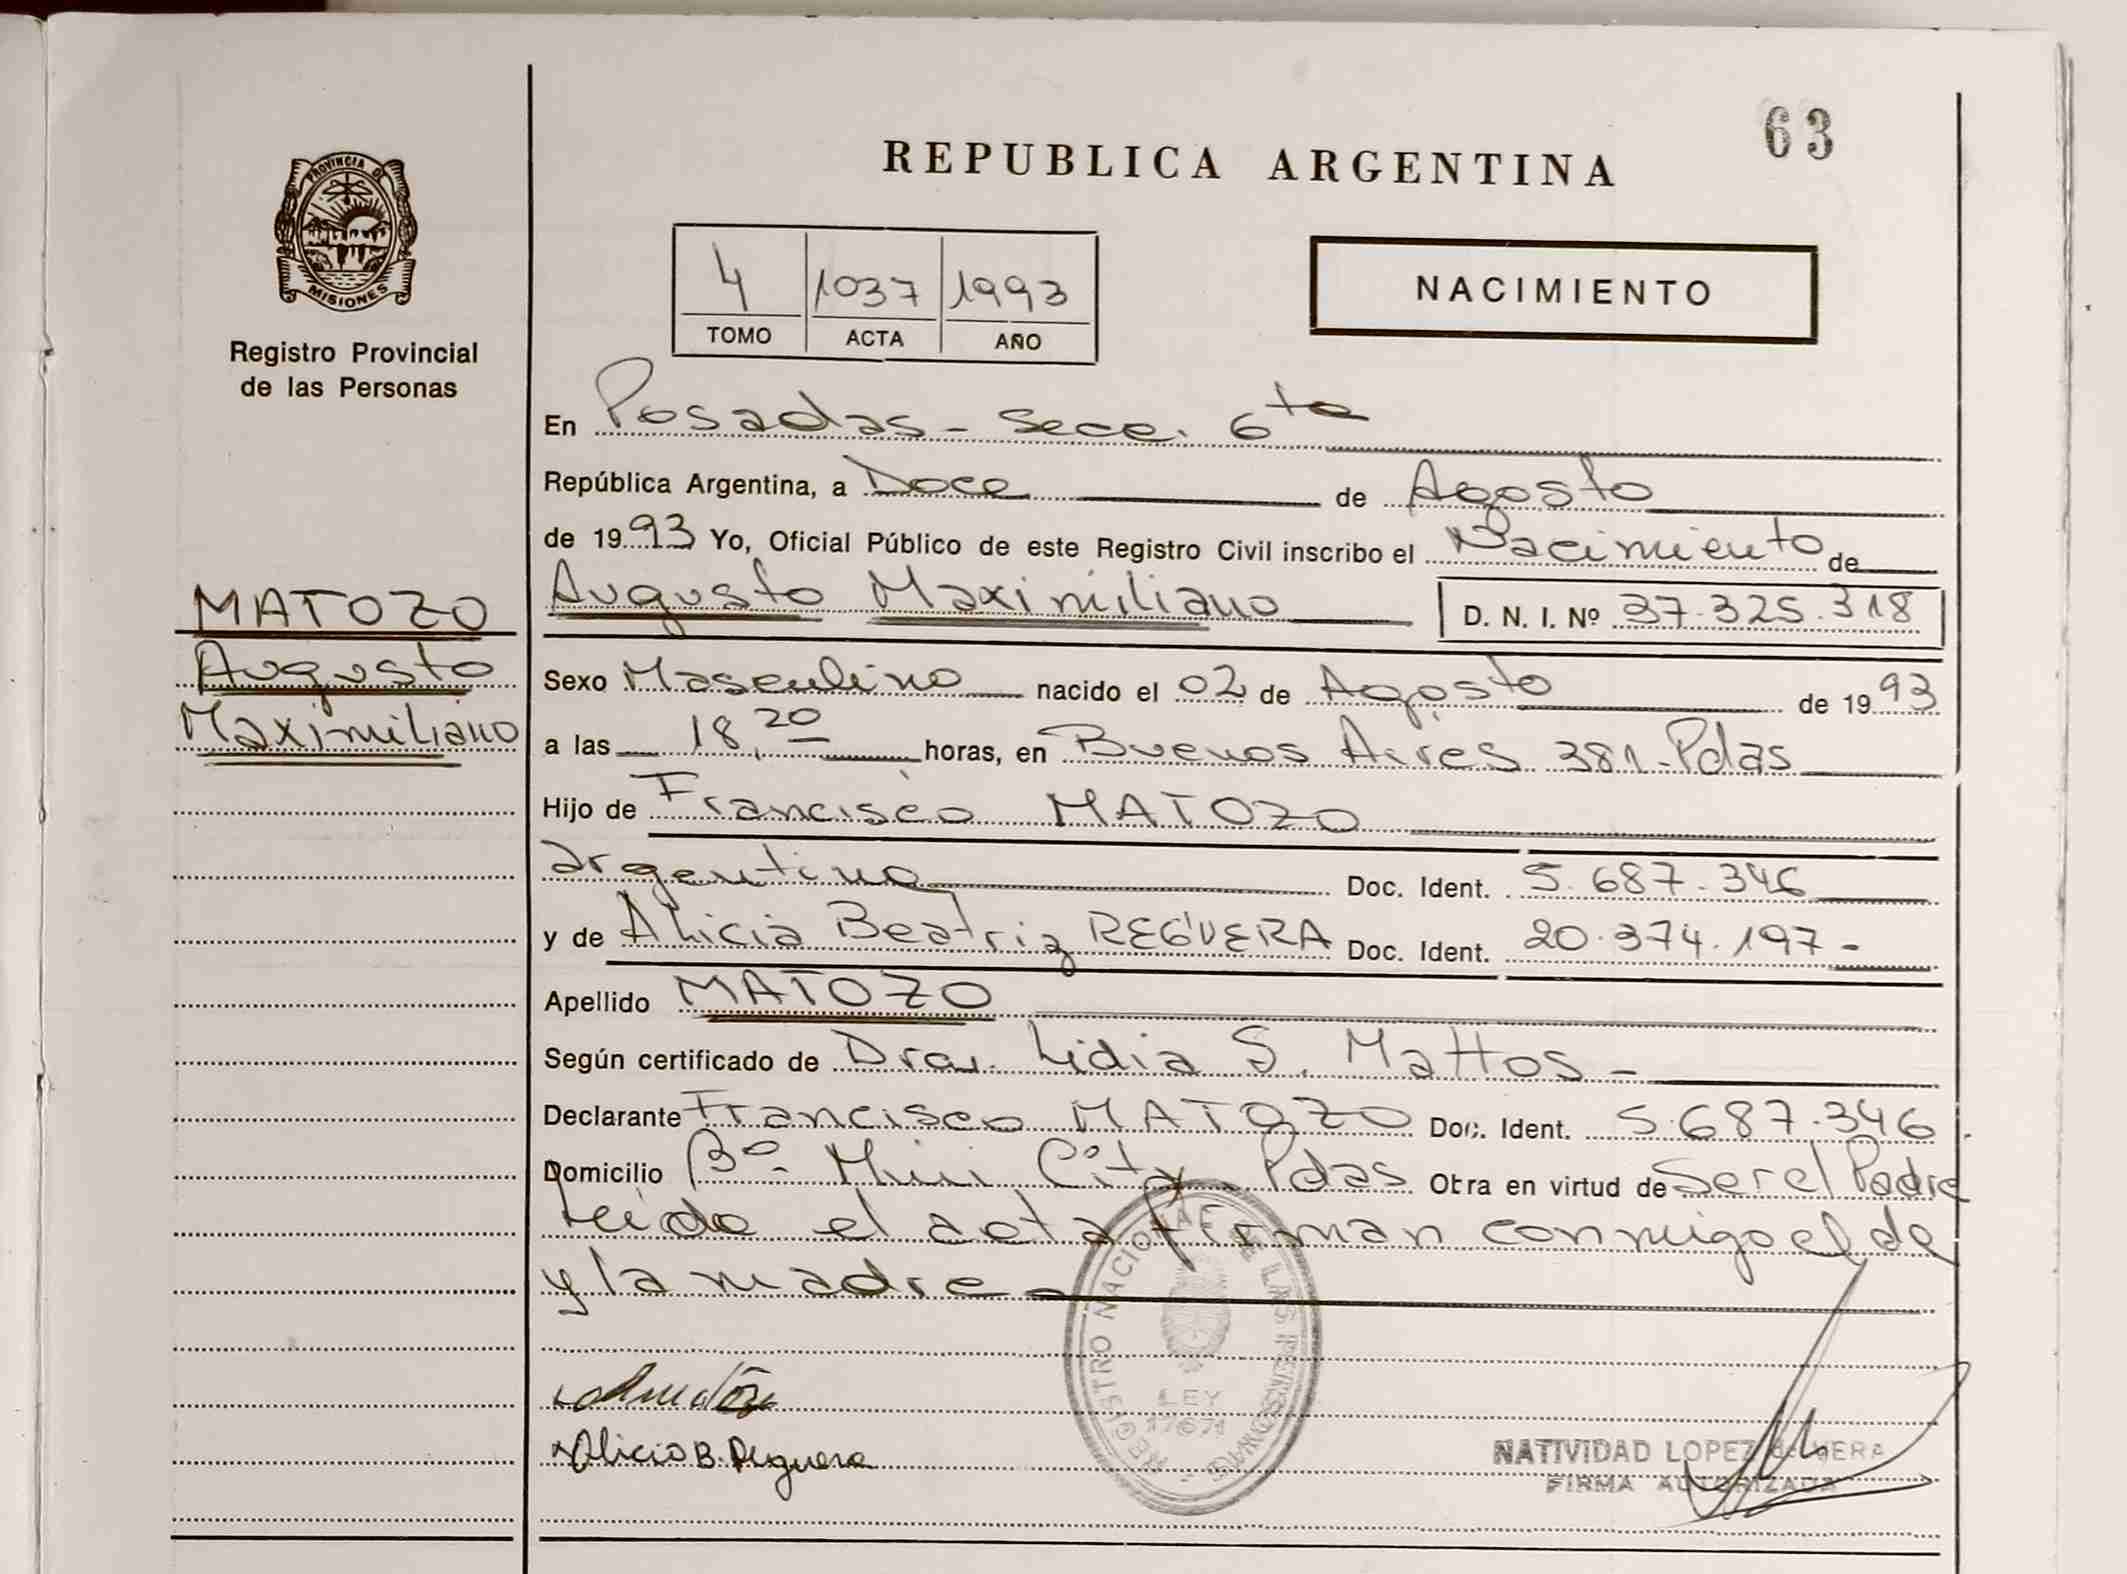 63
REPUBLICA ARGENTINA
PROVINCIA D
MISIONES
Registro Provincial
de las Personas
4 1037 1993
TOMO ACTA AÑO
NACIMIENTO
En Posadas - Secc. 6ta
República Argentina, a Doce de Agosto
de 1993 Yo, Oficial Público de este Registro Civil inscribo el Nacimiento de
MATOZO
Augusto
Maximiliano
Augusto Maximiliano D. N. I. Nº 37.325.318
Sexo Masculino nacido el 02 de Agosto de 1993
a las 18,20 horas, en Buenos Aires 381-Pdas
Hijo de Francisco MATOZO
argentino Doc. Ident. 5.687.346
y de Alicia Beatriz REGUERA Doc. Ident. 20.374.197-
Apellido MATOZO
Según certificado de Dra. Lidia S. Mattos -
Declarante Francisco MATOZO Doc. Ident. 5.687.346.
Domicilio Bº Mini City Pdas Otra en virtud de Ser el Padre
Leido el acta firman conmigo el de
y la madre -
REGISTRO NACIONAL DE LAS PERSONAS
LEY
17671
Alicia B. Reguera
NATIVIDAD LOPEZ de VERA
FIRMA AUTORIZADA